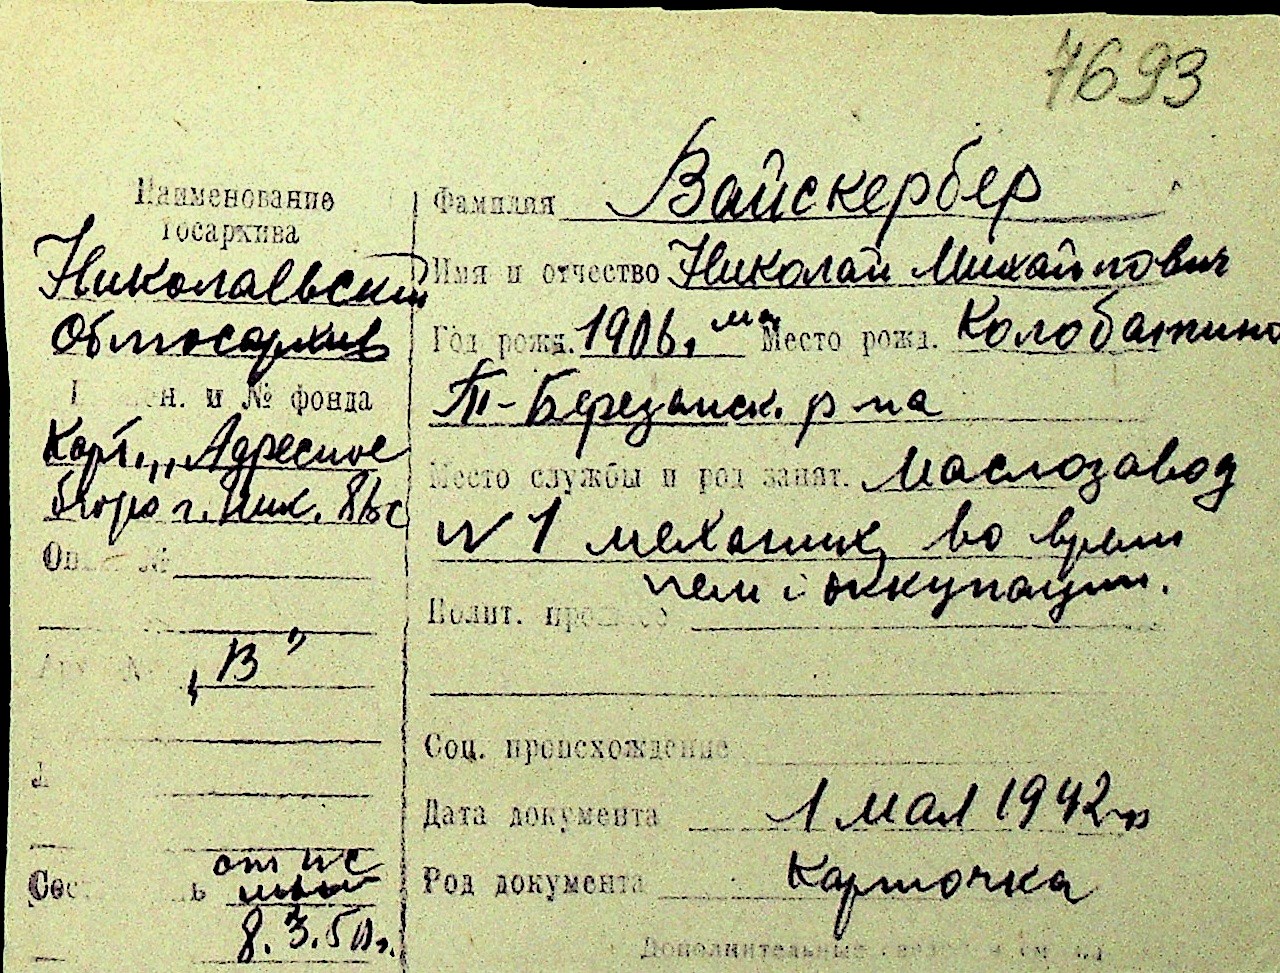 7693
Наименование
Госархива
Николаевский
Облгосархив
и № фонда
Карт. „Адресное
бюро г. Ник.
№
„В"
от
8.3.50г.
Фамилия Вайскербер
Имя и отчество Николай Михайлович
Год рожд. 1906, Место рожд.
Т-Березанск. р-на
Место службы и род занят. Маслозавод
N 1 механик, во время
нем оккупации.
Полит.
Соц. происхождение
Дата документа 1 мая 1942г
Род документа Карточка
Дополнительные